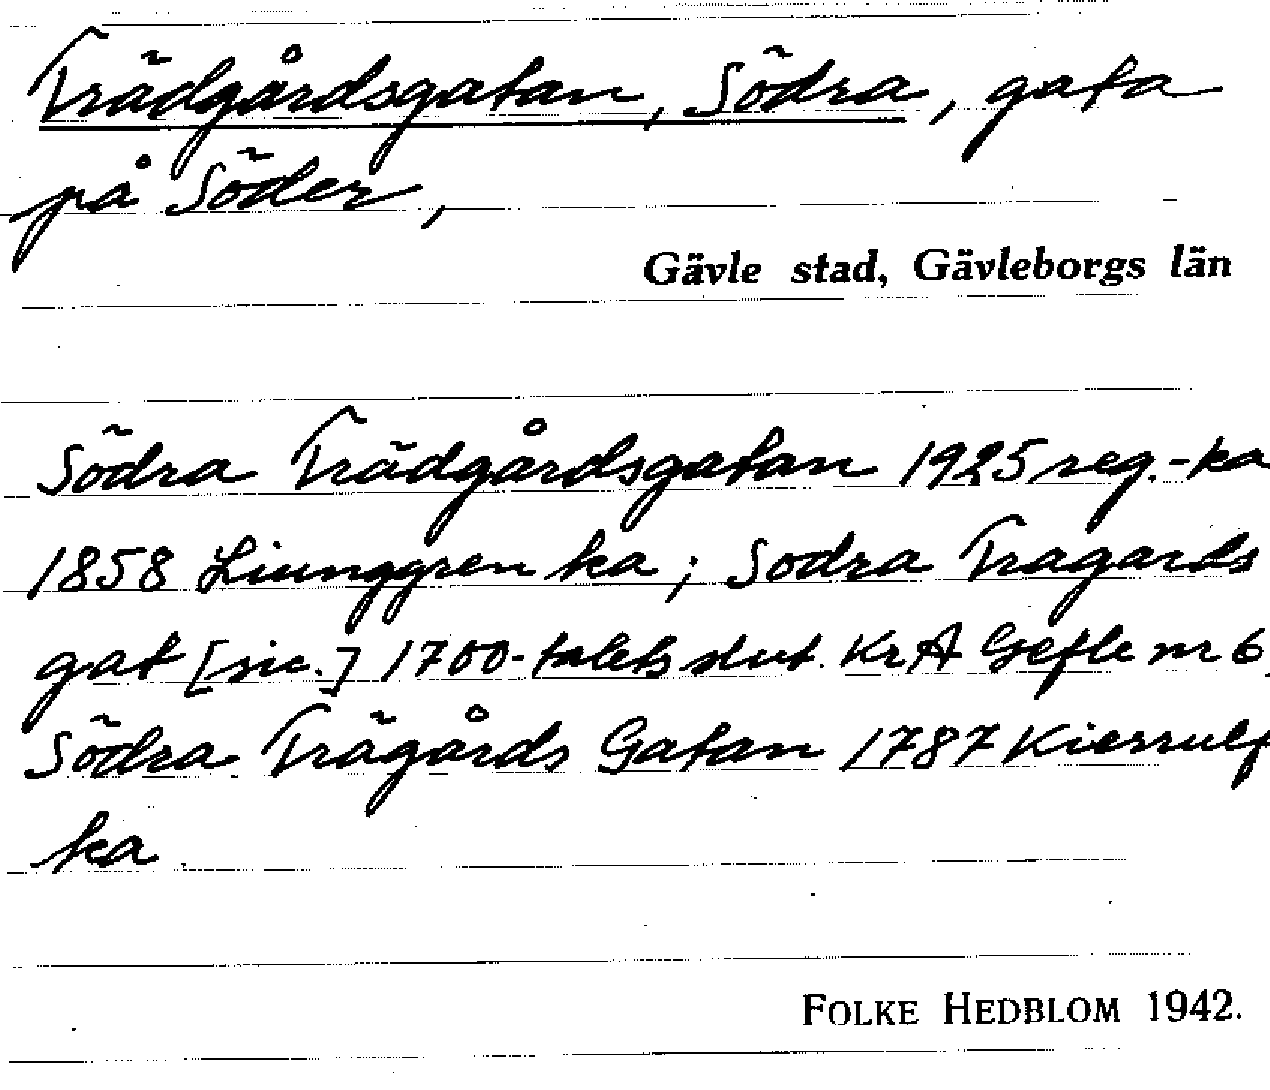 Trädgårdsgatan, Södra, gata
på Söder,
Gävle stad, Gävleborgs län
Södra Trädgårdsgatan 1925 reg.-ka
1858 Ljunggren ka; Sodra Tragards
gat [sic.] 1700-talets slut. KrA Gefle nr 6.
Södra Trägårds Gatan 1787 Kierrulf
ka
FOLKE HEDBLOM 1942.